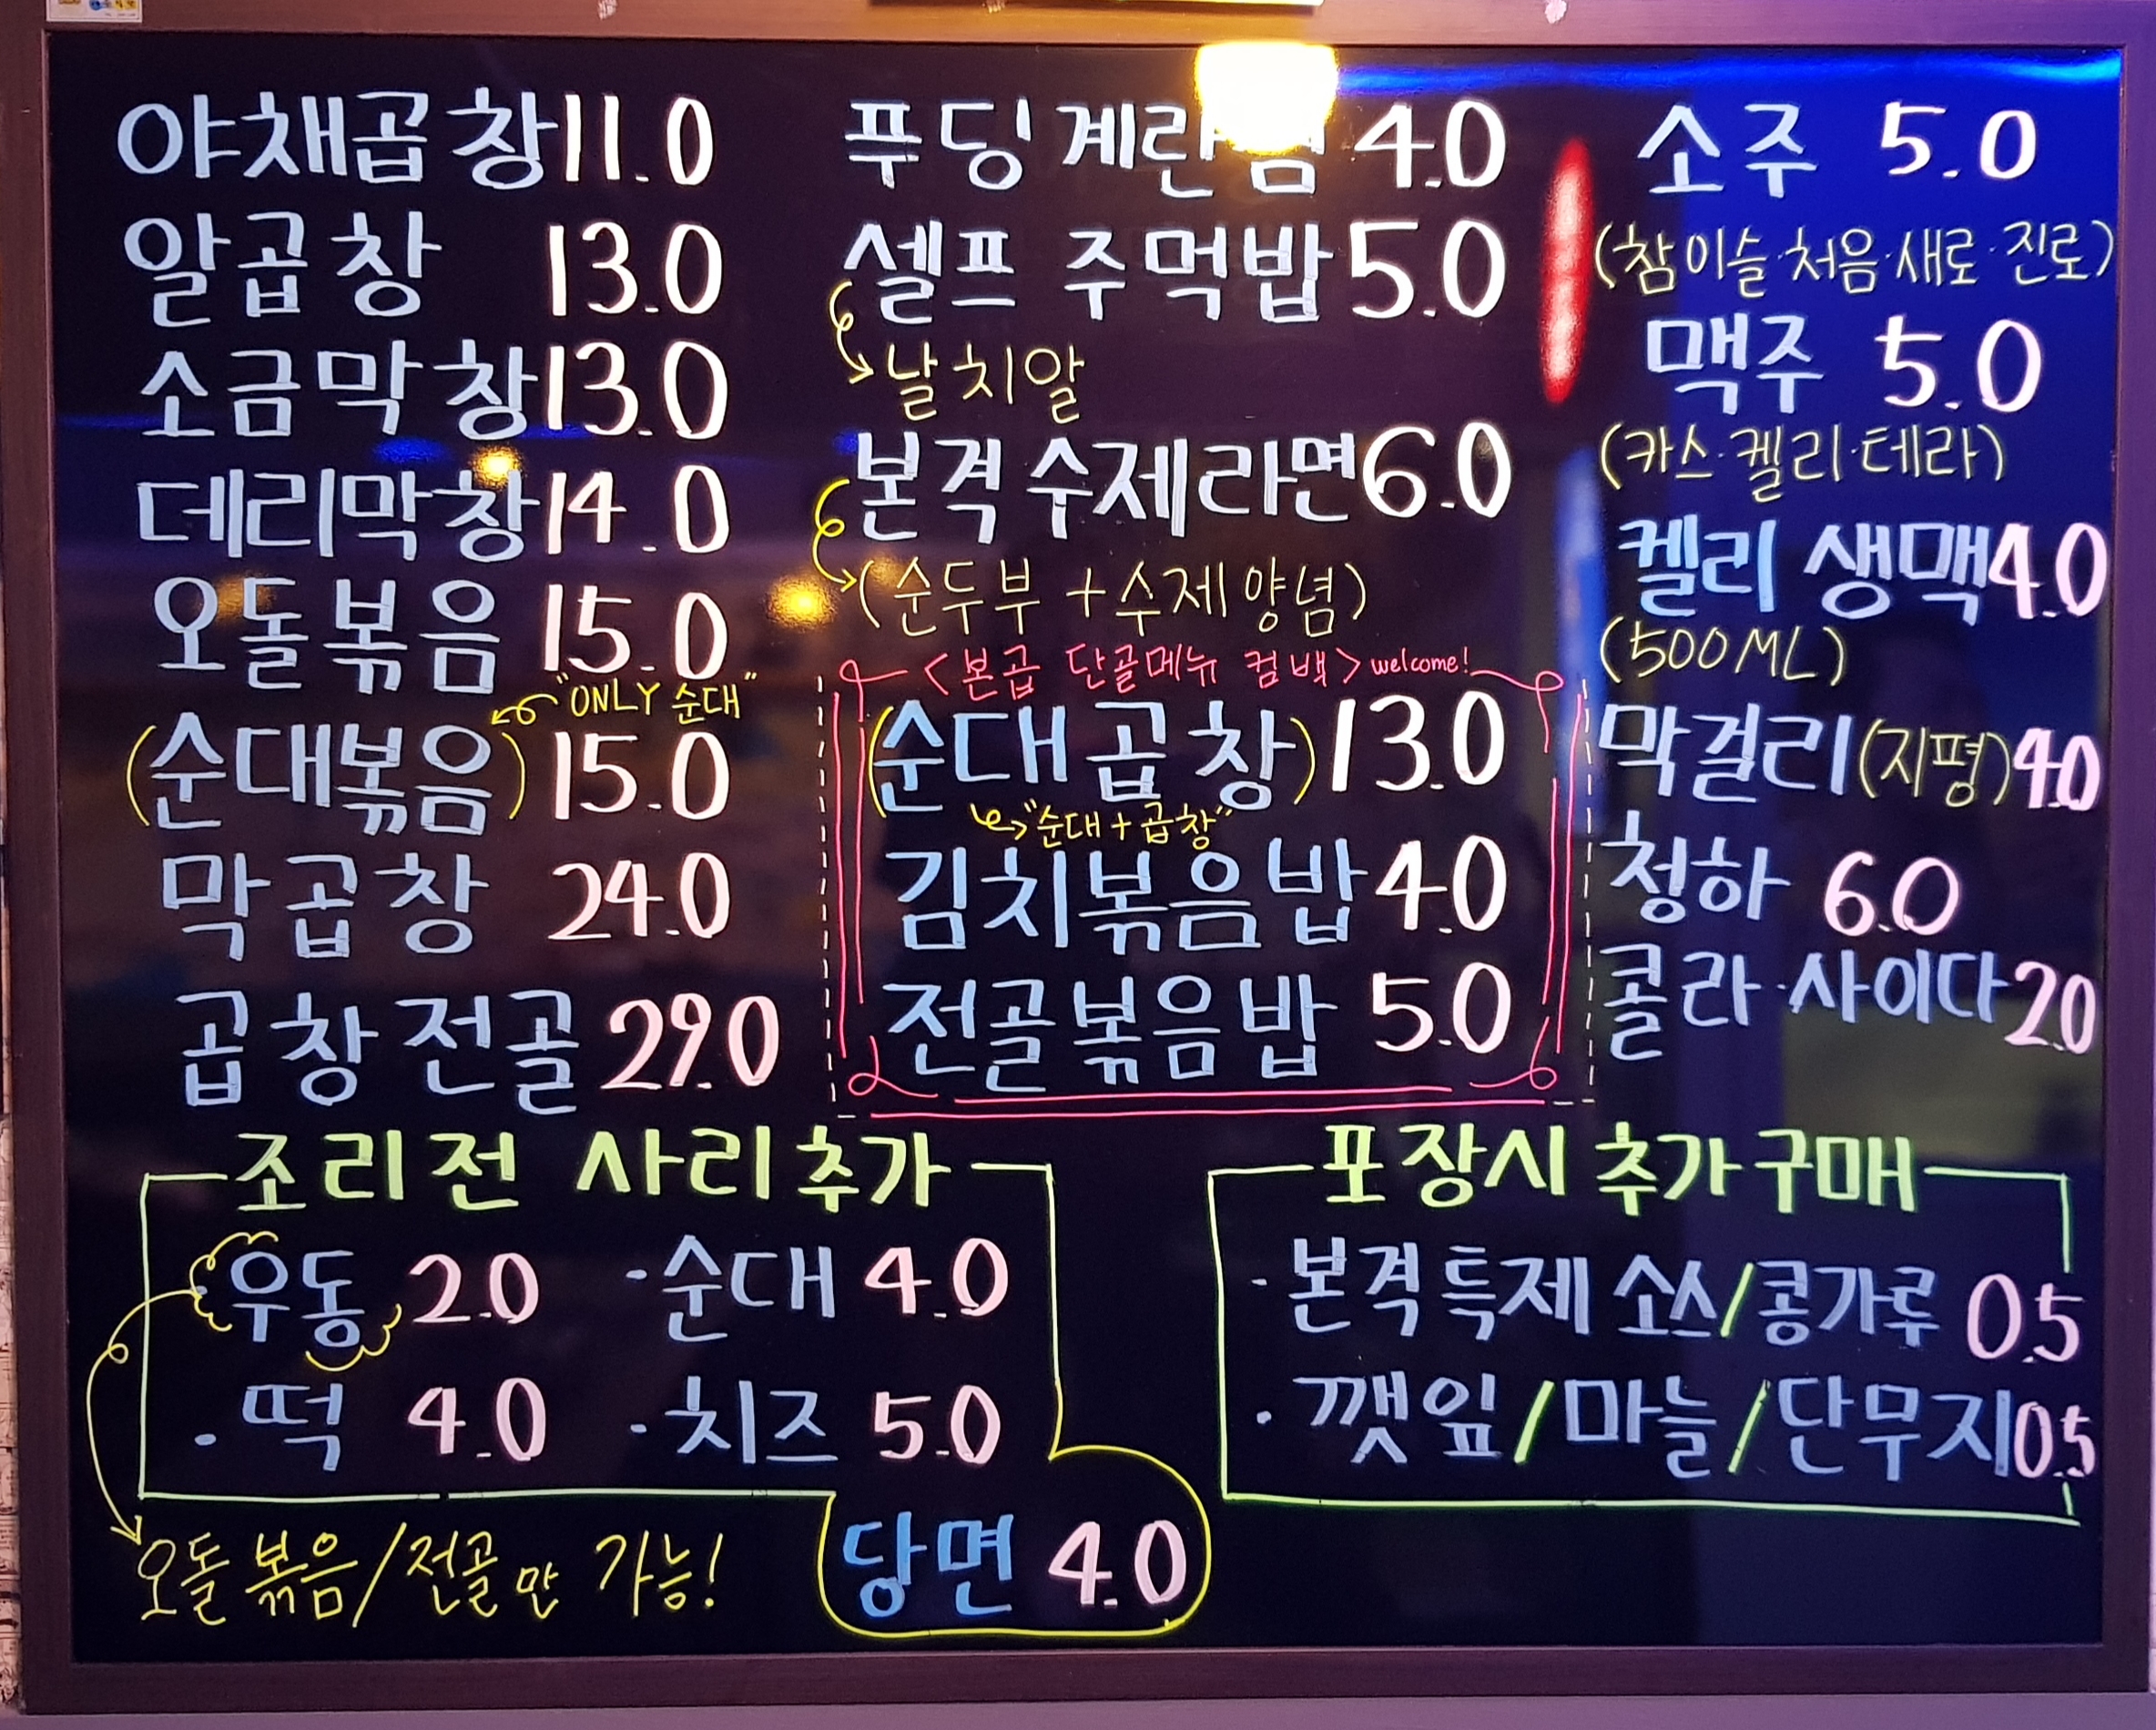 야채곱창 11.0
알곱창 13.0
소금막창 13.0
데리막창 14.0
오돌볶음 15.0
"ONLY 순대"
(순대볶음) 15.0
막곱창 24.0
곱창전골 29.0
푸딩 계란찜 4.0
셀프 주먹밥 5.0
날치알
본격수제라면 6.0
(순두부 + 수제양념)
<본곱 단골메뉴 컴백> welcome!
(순대곱창) 13.0
"순대 + 곱창"
김치볶음밥 4.0
전골볶음밥 5.0
소주 5.0
(참이슬·처음·새로·진로)
맥주 5.0
(카스·켈리·테라)
켈리 생맥 4.0
(500ML)
막걸리(지평) 4.0
청하 6.0
콜라·사이다 2.0
조리전 사리추가
·우동 2.0 ·순대 4.0
·떡 4.0 ·치즈 5.0
당면 4.0
오돌볶음/전골만 가능!
포장시 추가구매
·본격특제 소스/콩가루 0.5
·깻잎/마늘/단무지 0.5